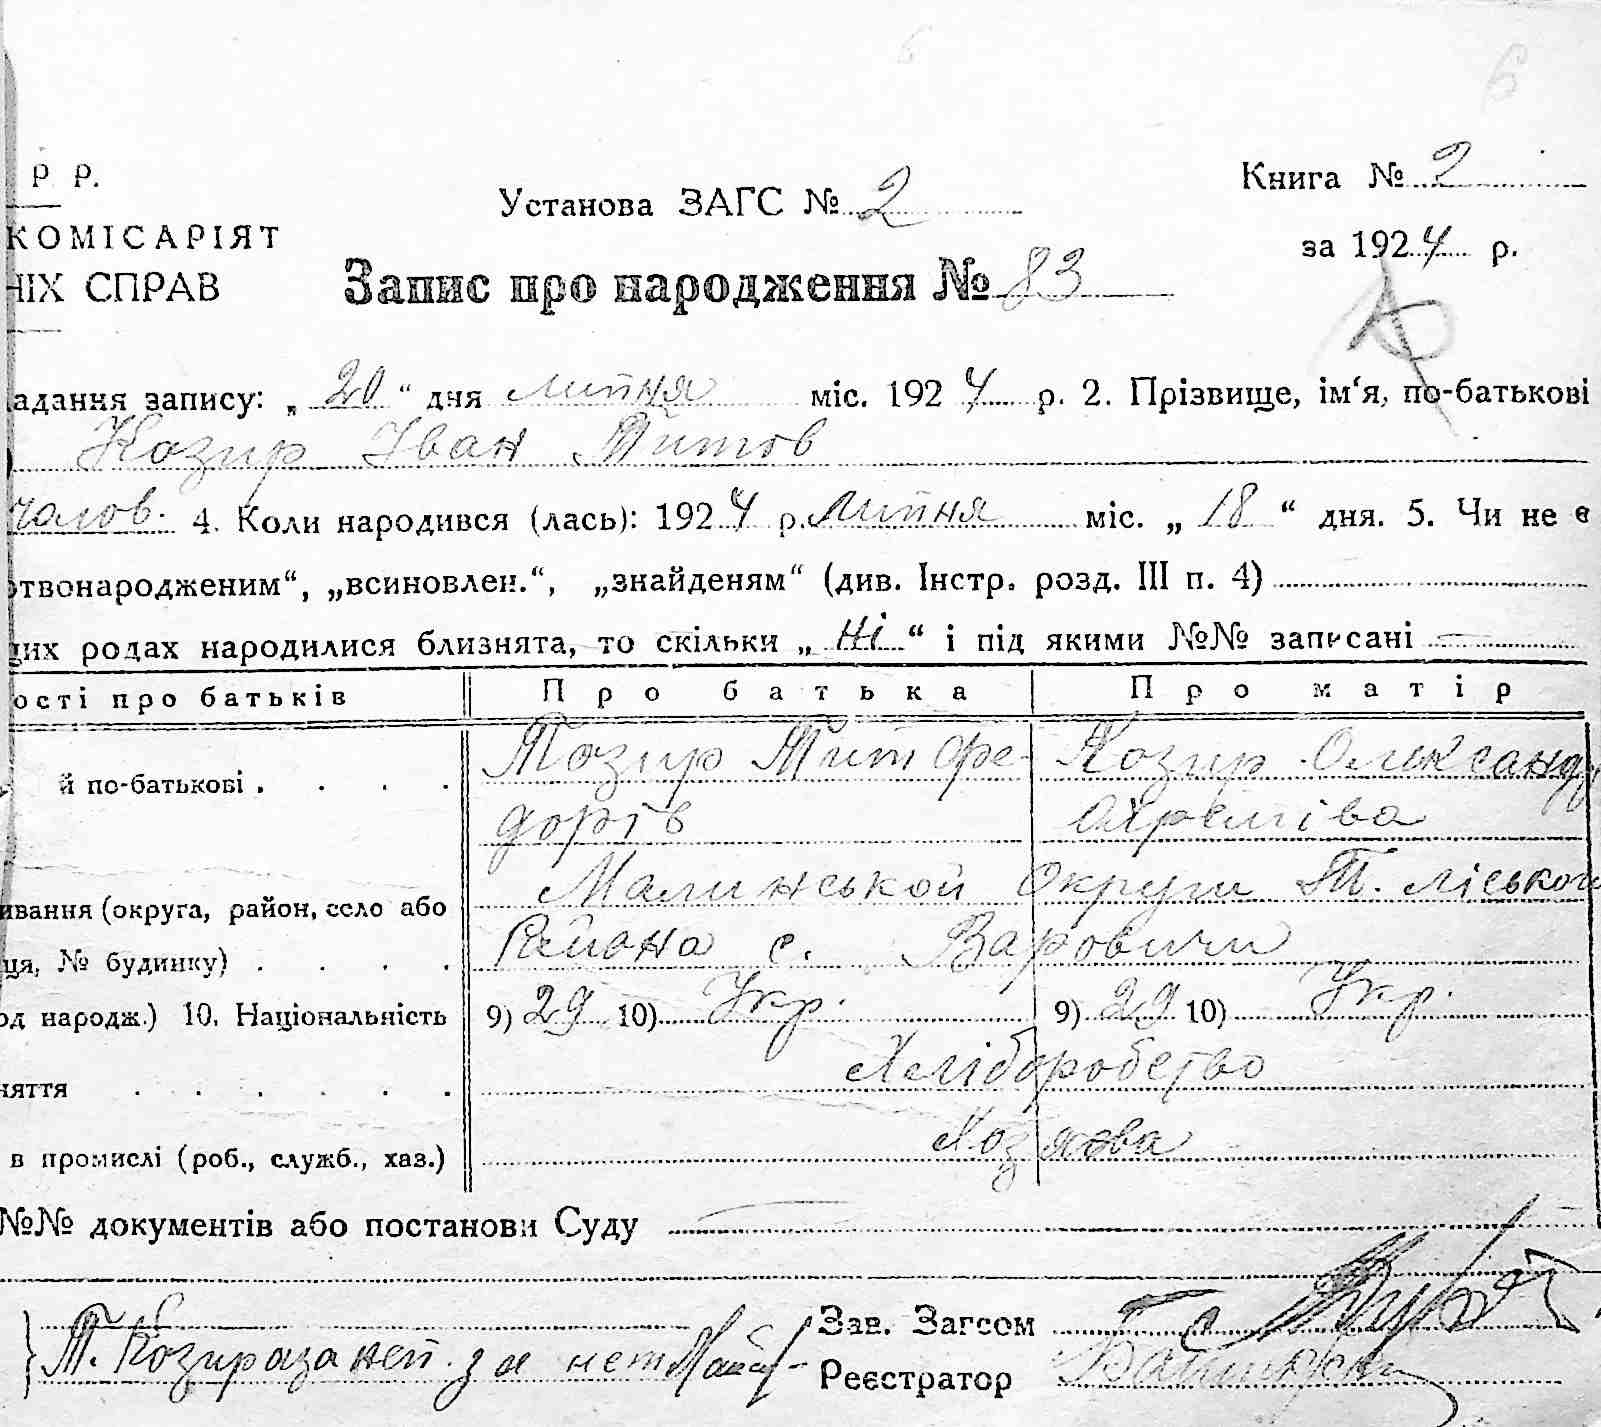 6
Р Р.
КОМІСАРІЯТ
НІХ СПРАВ
Установа ЗАГС № 2
Книга № 2
за 1924 р.
Запис про народження № 83
адання запису: „20“ дня липня міс. 1924 р. 2. Прізвище, ім‘я, по-батькові
Козир Іван Титов
чолов. 4. Коли народився (лась): 1924 р. липня міс. „18“ дня. 5. Чи не є
ртвонародженим“, „всиновлен.“, „знайденям“ (див. Інстр. розд. III п. 4)
цих родах народилися близнята, то скільки „Ні“ і під якими №№ записані —
ості про батьків Про батька Про матір
й по-батькові . . . . Козир Тит Фе- Козир Олександр
дорів Охремова
ивання (округа, район, село або Малинської Округи
ця, № будинку) . . . . Района с. Варовичи
од народж.) 10. Національність 9) 29 10) Укр. 9) 29 10) Укр.
няття . . . . . . Хліборобство
в промислі (роб., служб., хаз.) Хозяева
№№ документів або постанови Суду —
Т. Козир за неп.
Зав. Загсом
Реєстратор